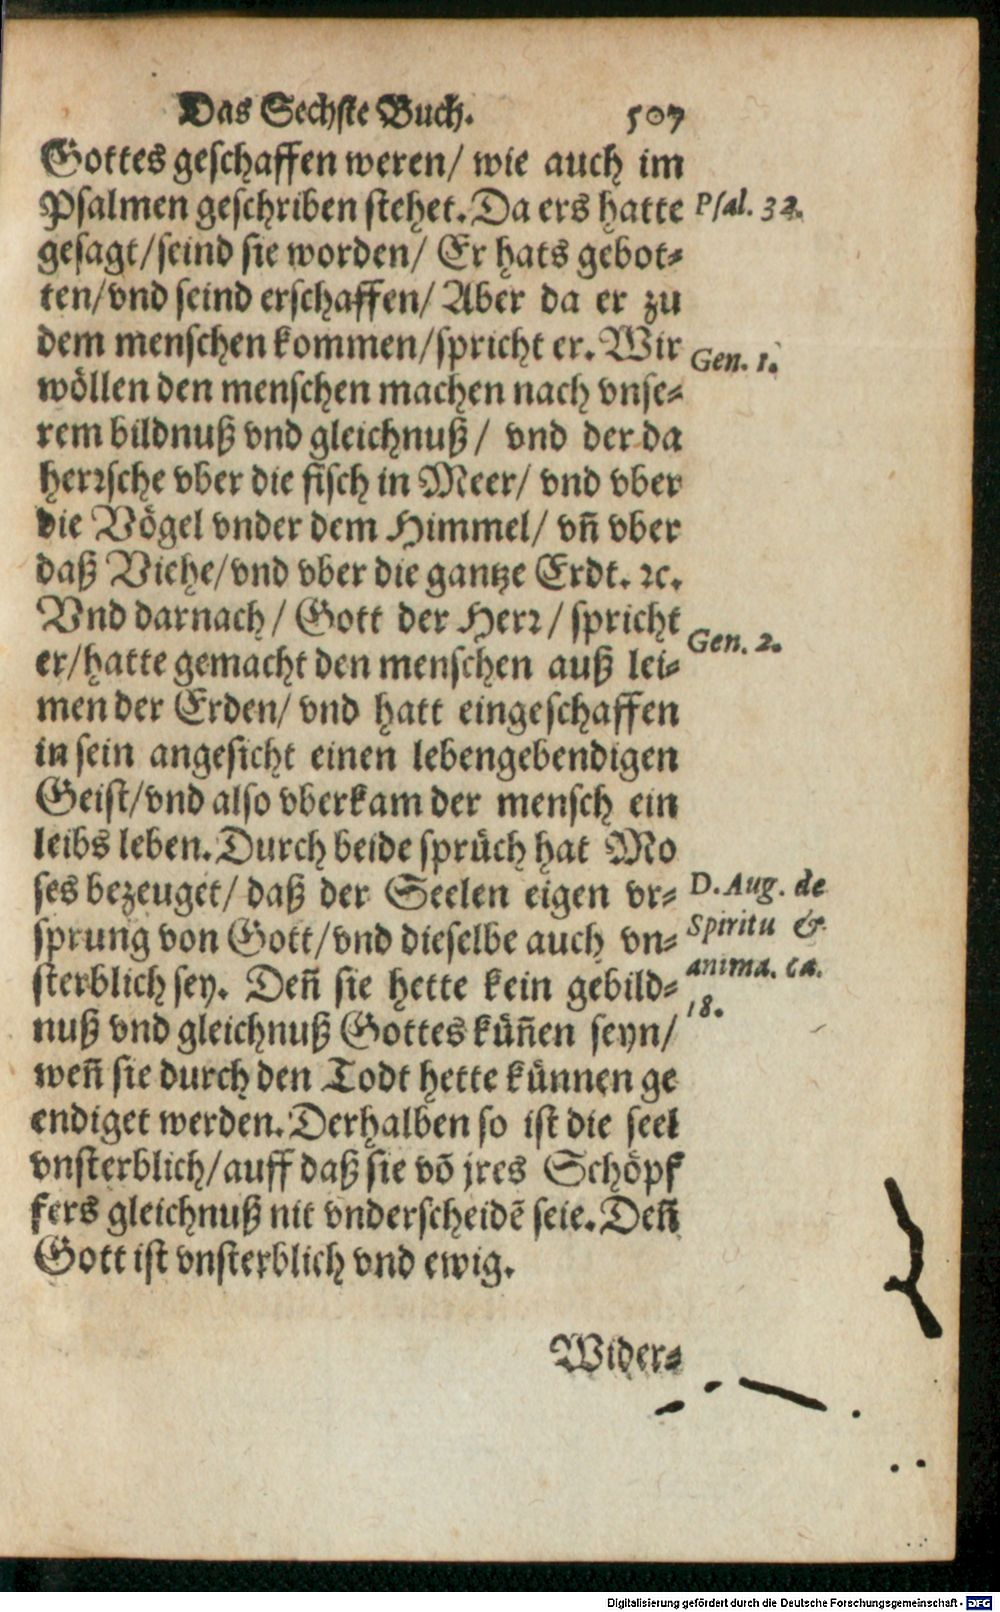 Das Sechste Buch. 507
Gottes geschaffen weren/ wie auch im
Psalmen geschriben stehet. Da ers hatte
Psal. 32.
gesagt/seind sie worden/ Er hats gebot⸗
ten/vnd seind erschaffen/ Aber da er zu
dem menschen kommen/spricht er. Wir
Gen. 1.
wöllen den menschen machen nach vnse⸗
rem bildnuß vnd gleichnuß/ vnd der da
herꝛsche vber die fisch in Meer/ vnd vber
die Vögel vnder dem Himmel/ vñ vber
daß Viehe/vnd vber die gantze Erdt. ꝛc.
Vnd darnach/ Gott der Herꝛ/ spricht
Gen. 2.
er/hatte gemacht den menschen auß lei⸗
men der Erden/ vnd hatt eingeschaffen
in sein angesicht einen lebengebendigen
Geist/vnd also vberkam der mensch ein
leibs leben. Durch beide sprüch hat Mo
ses bezeuget/ daß der Seelen eigen vr⸗
D. Aug. de
sprung von Gott/vnd dieselbe auch vn⸗
Spiritu &
sterblich sey. Deñ sie hette kein gebild⸗
anima. ca.
18.
nuß vnd gleichnuß Gottes küñen seyn/
weñ sie durch den Todt hette künnen ge
endiget werden. Derhalben so ist die seel
vnsterblich/auff daß sie võ jres Schöpf
fers gleichnuß nit vnderscheidẽ seie. Deñ
Gott ist vnsterblich vnd ewig.
Wider⸗
Digitalisierung gefördert durch die Deutsche Forschungsgemeinschaft - DFG